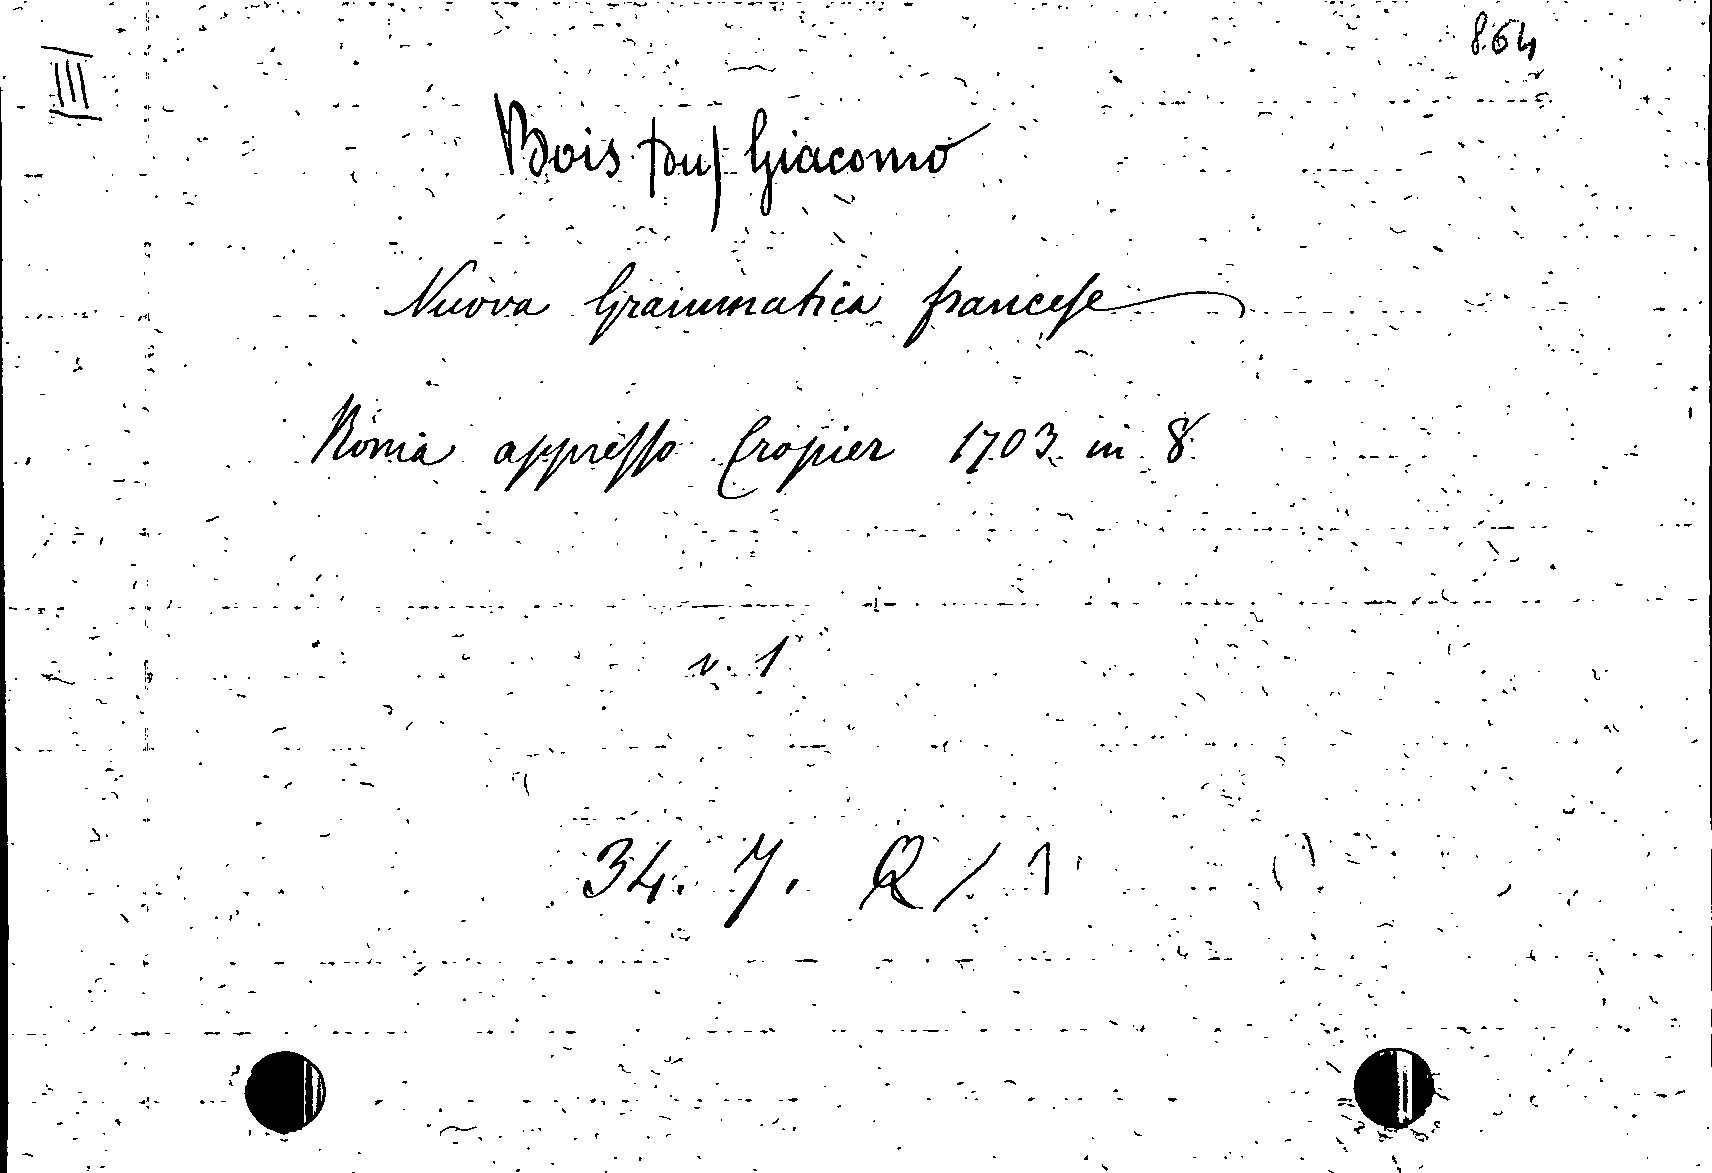 864
III
Bois (du) Giacomo
Nuova Grammatica francese
Roma appresso Cropier 1703 in 8
v. 1
34. 7. Q / 1